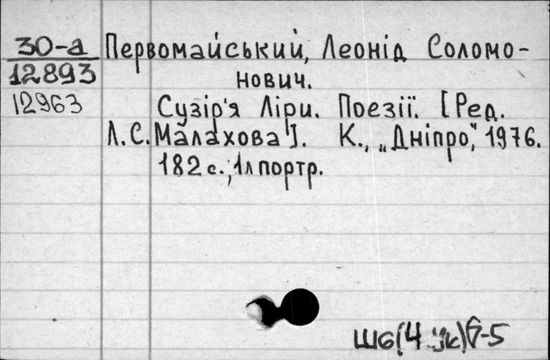 30-а Первомайський, Леонід Соломо-
12893 нович.
12963 Сузір'я Ліри. Поезії. [Ред.
Л.С.Малахова]. К., „Дніпро", 1976.
182 с.; 1л портр.
Ш6(4 Ук)6-5